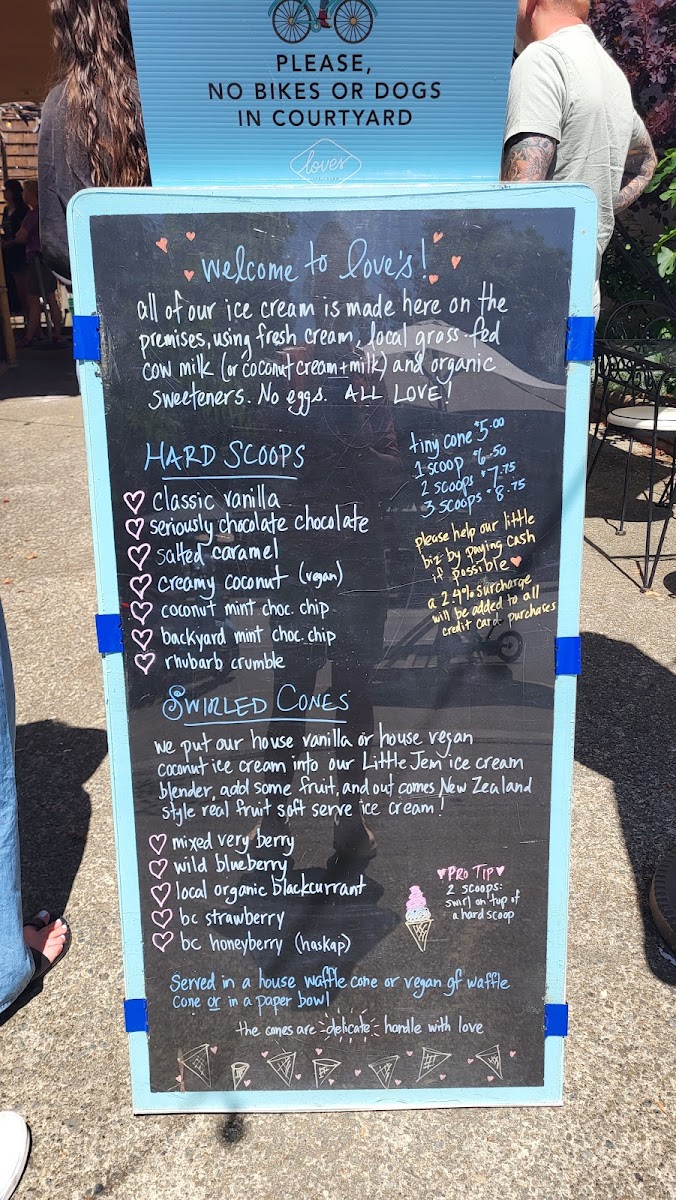 PLEASE,
NO BIKES OR DOGS
IN COURTYARD
love's
welcome to love's!
all of our ice cream is made here on the
premises, using fresh cream, local grass-fed
cow milk (or coconut cream + milk) and organic
sweeteners. No eggs. ALL LOVE!
HARD SCOOPS
classic vanilla
seriously chocolate chocolate
salted caramel
creamy coconut (vegan)
coconut mint choc. chip
backyard mint choc. chip
rhubarb crumble
tiny cone $5.00
1 scoop $6.50
2 scoops $7.75
3 scoops $8.75
please help our little
biz by paying cash
if possible
a 2.4% surcharge
will be added to all
credit card purchases
SWIRLED CONES
we put our house vanilla or house vegan
coconut ice cream into our Little Jem ice cream
blender, add some fruit, and out comes New Zealand
style real fruit soft serve ice cream!
mixed very berry
wild blueberry
local organic blackcurrant
bc strawberry
bc honeyberry (haskap)
PRO TIP
2 scoops:
swirl on top of
a hard scoop
Served in a house waffle cone or vegan gf waffle
cone or in a paper bowl
the cones are delicate handle with love